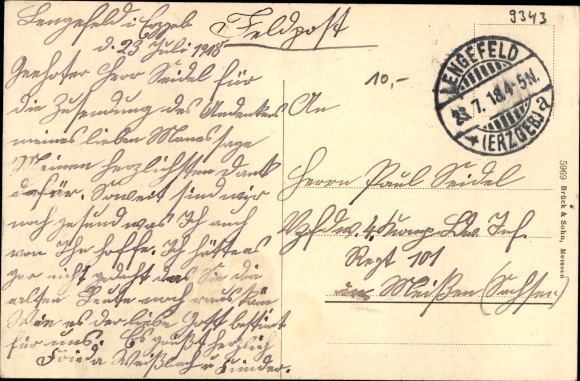 Lengefeld i. Erzgeb
d. 23 Juli 1918
Feldpost
9343
10,-
LENGEFELD
23.7.18.4-5N.
* (ERZGEB.) a
Geehrter Herr Seidel für
die Zusendung des Andenkens
meines lieben Mannes sage
Meinen herzlichsten Dank
dafür. Soweit sind wir
noch gesund was Ich auch
von Ihn hoffe. Ich hätte es
gar nicht gedacht das Sie die
alten Leute noch raus
Wie es der liebe Gott bestimt
für uns. Es grüßt herzlich
Frieda Weißbach u Kinder.
An
Herrn Paul Seidel
Vzfdw. 4. Komp. Ldw. Inf.
Regt 101
in Meißen (Sachsen)
5969 Brück & Sohn, Meissen